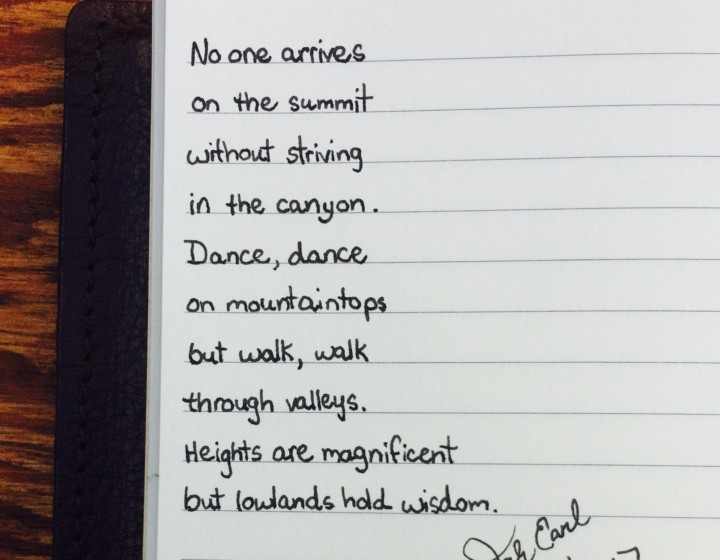 No one arrives
on the summit
without striving
in the canyon.
Dance, dance
on mountaintops
but walk, walk
through valleys.
Heights are magnificent
but lowlands hold wisdom.
Earl